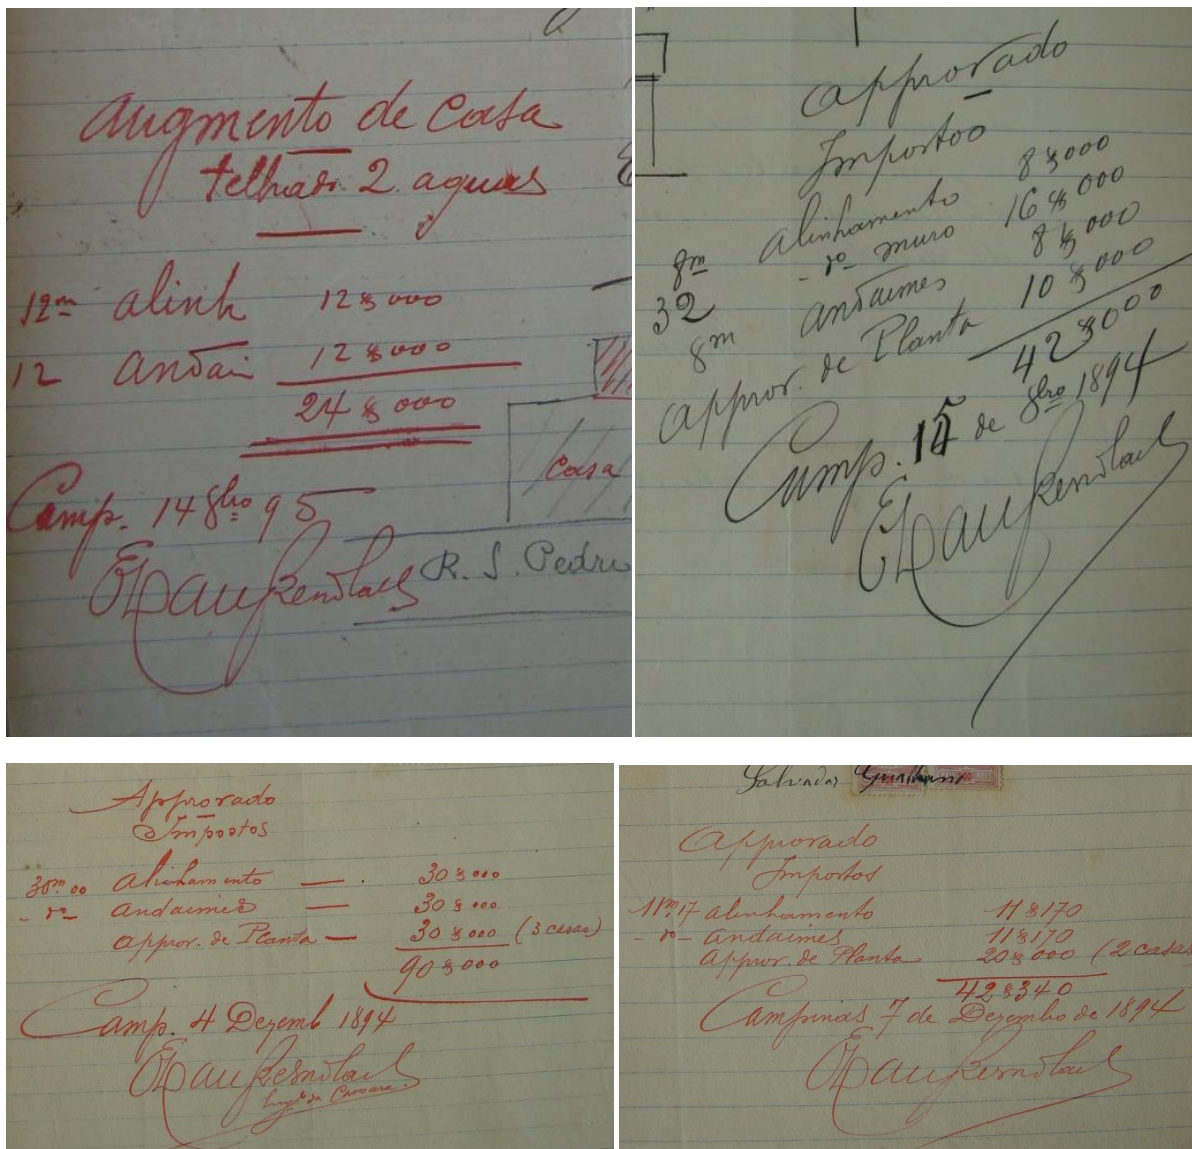 Augmento de Casa
telhado 2 aguas
12m alinh 12$000
12 Andai 12$000
24$000
Camp. 14 8bro 95
Casa
R. S. Pedro
Approvado
Impostos
8m Alinhamento 8$000
32 - do - muro 16$000
8m Andaimes 8$000
Approv. de Planta 10$000
42$000
Camp. 15 de 8bro 1894
Approvado
Impostos
30m,00 Alinhamento — 30$000
- do - Andaimes — 30$000
Approv. de Planta — 30$000 (3 casas)
90$000
Camp. 4 Dezemb 1894
Salvador
Approvado
Impostos
11m,17 Alinhamento 11$170
- do - Andaimes 11$170
Approv. de Planta 20$000 (2 casas
42$340
Campinas 7 de Dezembro de 1894